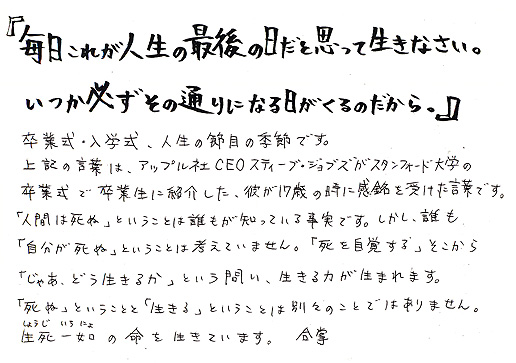 『毎日これが人生の最後の日だと思って生きなさい。
いつか必ずその通りになる日がくるのだから。』
卒業式・入学式、人生の節目の季節です。
上記の言葉は、アップル社CEOスティーブ・ジョブズがスタンフォード大学の
卒業式で卒業生に紹介した、彼が17歳の時に感銘を受けた言葉です。
「人間は死ぬ」ということは誰もが知っている事実です。しかし、誰も
「自分が死ぬ」ということは考えていません。「死を自覚する」そこから
「じゃあ、どう生きるか」という問い、生きる力が生まれます。
「死ぬ」ということと「生きる」ということは別々のことではありません。
しょうじ いちにょ
生死一如の命を生きています。 合掌